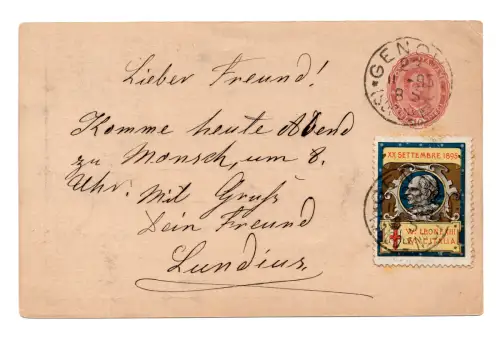 Lieber Freund!
Komme heute Abend
zu Monsch, um 8.
Uhr. Mit Gruß
Dein Freund
Lundius.
GENOVA
XX SETTEMBRE 1895
W. LEONE XIII